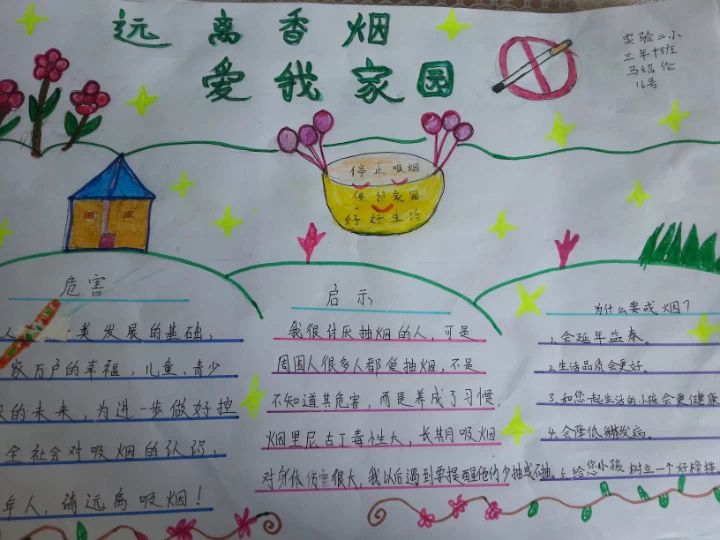 远离香烟
爱我家园
实验二小
三年十班
马绍伦
16号
停止吸烟
保护家园
好好生活
危害
人 类发展的基础,
家万户的幸福,儿童、青少
的未来,为进一步做好控
全社会对吸烟的认识,
年人,请远离吸烟!
启示
我很讨厌抽烟的人,可是
周围人很多人都爱抽烟,不是
不知道其危害,而是养成了习惯,
烟里尼古丁毒性大,长期吸烟
对身体伤害很大,我以后遇到要提醒他们少抽或不抽。
为什么要戒烟?
1.会延年益寿。
2.生活品质会更好。
3.和您一起生活的小孩会更健康
4.会降低糖发病。
5.给您小孩树立一个好榜样